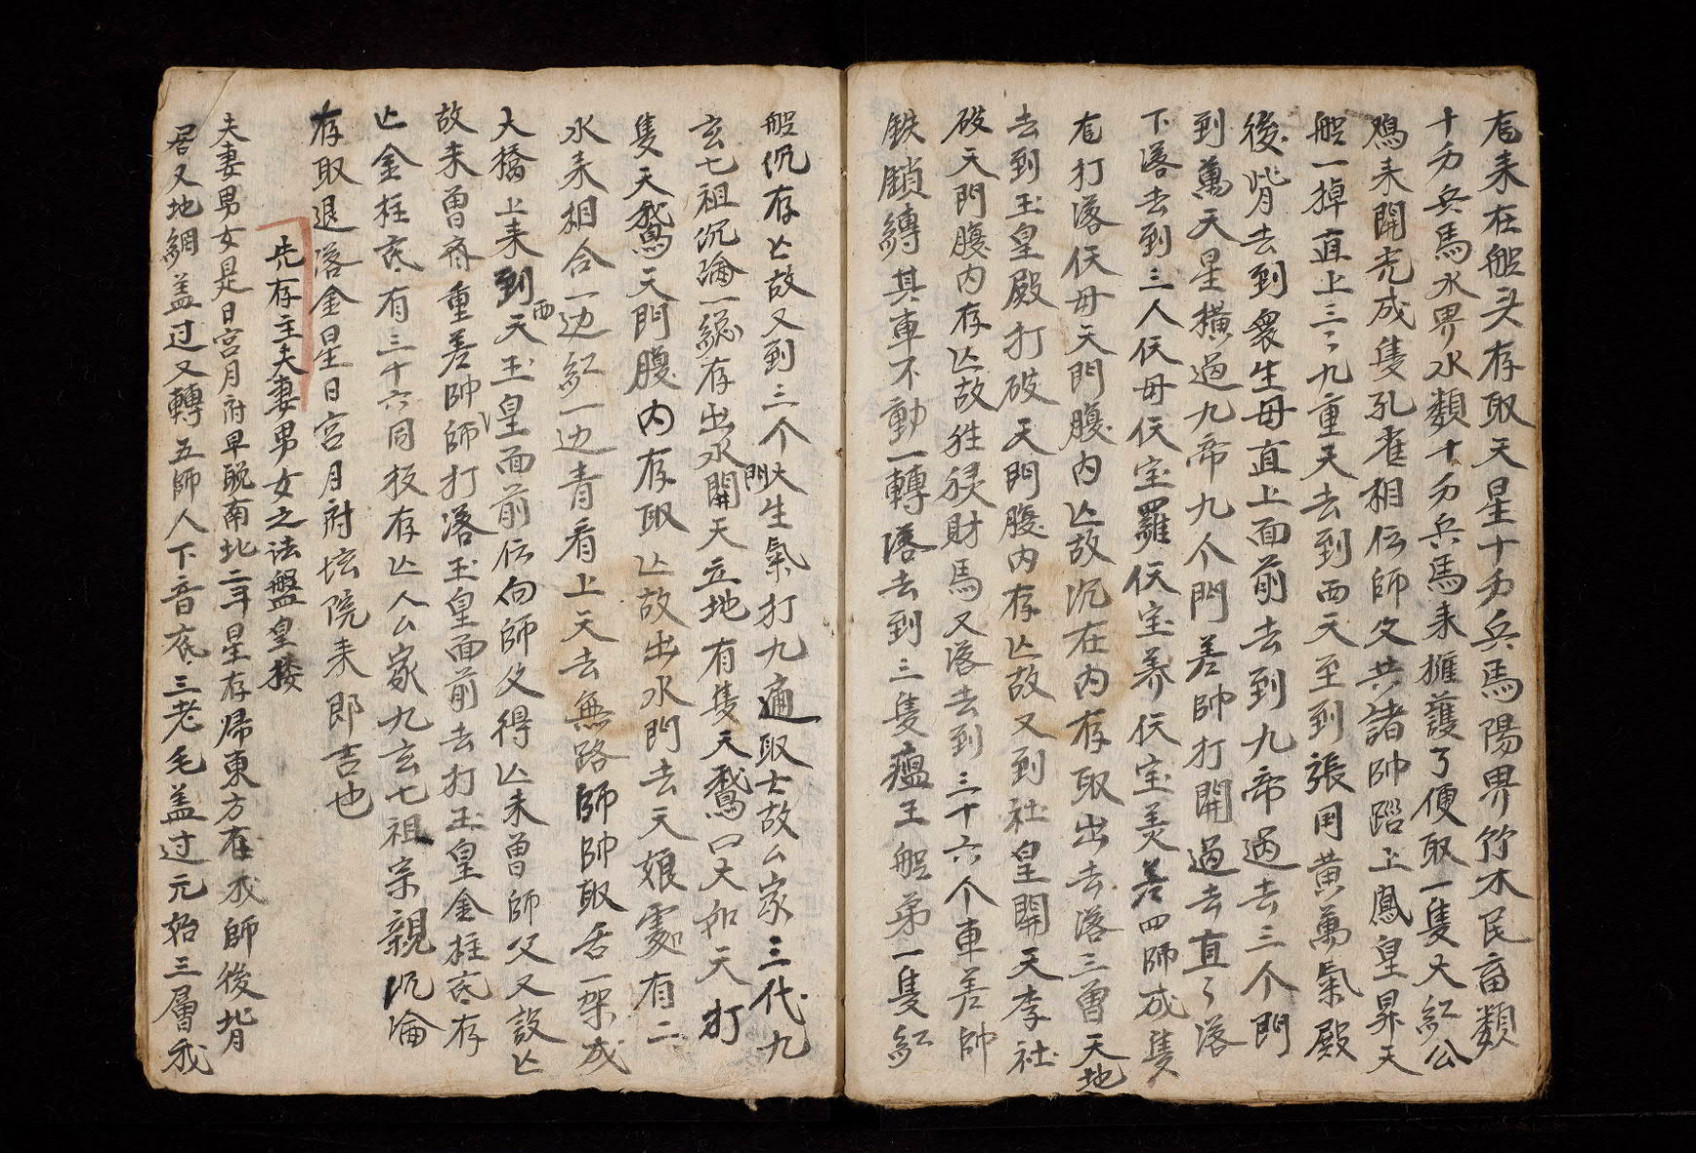 耒在船头存取天星十万兵馬陽界竹木民畜類
十万兵馬水界水類十万兵馬耒擁護了便取一隻大紅公
鳮耒開光成隻孔雀相伝師父共諸帅踏上鳳皇昇天
船一掉直上三〻九重天去到西天至到張用黄萬氣殿
後背去到衆生母直上面前去到九帝過去三个門
到萬天星横過九帝九个門差帅打開過去直〻落
下落去到三人伝母伝宝羅伝宝养伝宝美差四師成隻
打落伝母天門腹内亾故沉在内存取出去落三曾天地
去到玉皇殿打破天門腹内存亾故又到社皇開天李社
破天門腹内存亾故財馬又落去到三十六个車差帥
鉄鎖縛其車不動一轉落去到三隻瘟王船弟一隻紅
船沉存亾故又到三个大門生氣打九通取士故公家三代九
玄七祖沉淪一總存出水開天立地有隻天鵞口大如天打
隻天鵞天門腹内存取亾故出水門去天娘處有二
水耒相合一边紅一边青看上天去無路師帥取舌一架成
大橋上耒到西天玉皇面前伝向師父得亾未曽師父又設亾
故未曽齊重差帥師打落玉皇面前去打玉皇金柱底存
亾金柱底有三十六同板存亾人公家九玄七祖宗親沉淪
存取退落金星日宫月府坛院耒郎吉也
先存主夫妻男女之法盤皇楼
夫妻男女是日宫月府早晚南北二年星存帰東方在我師後背
居又地網盖过又轉五師人下音底三老毛盖过元始三層我